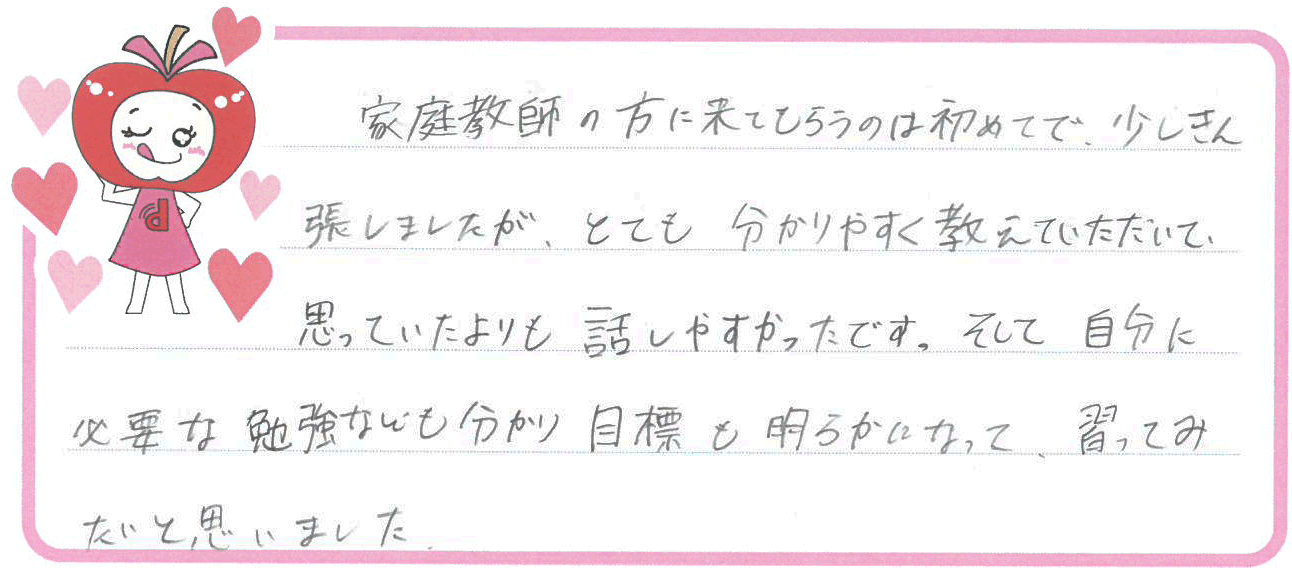 家庭教師の方に来てもらうのは初めてで、少しきん
張しましたが、とても 分かりやすく教えていただいて、
思っていたよりも 話しやすかったです。そして 自分に
必要な 勉強なども分かり 目標も 明らかになって、習ってみ
たいと思いました。